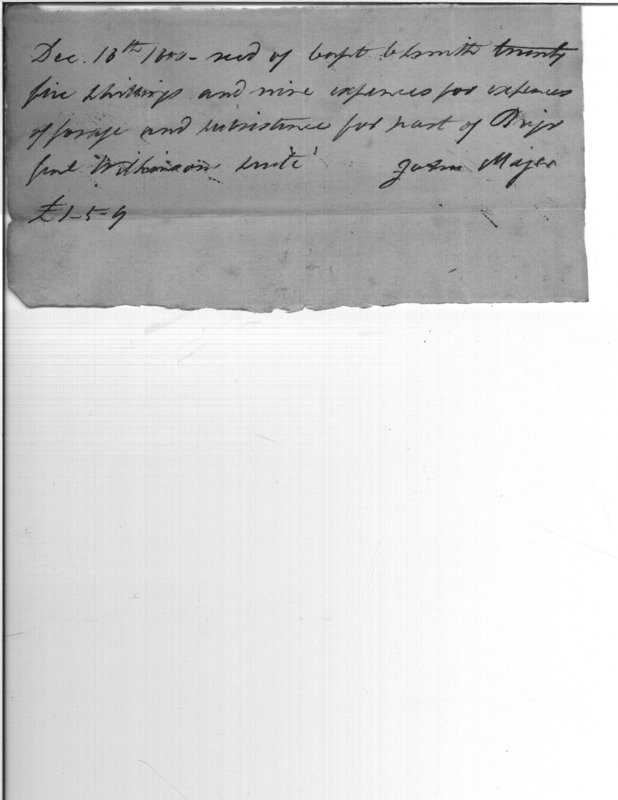 Dec. 18th 1800 - recd of Capt C Smith twenty
five shillings and nine expences for expences
of forage and subsistance for part of Brigr
Genl Wilkinsons suite
John Majer
£ 1-5-9